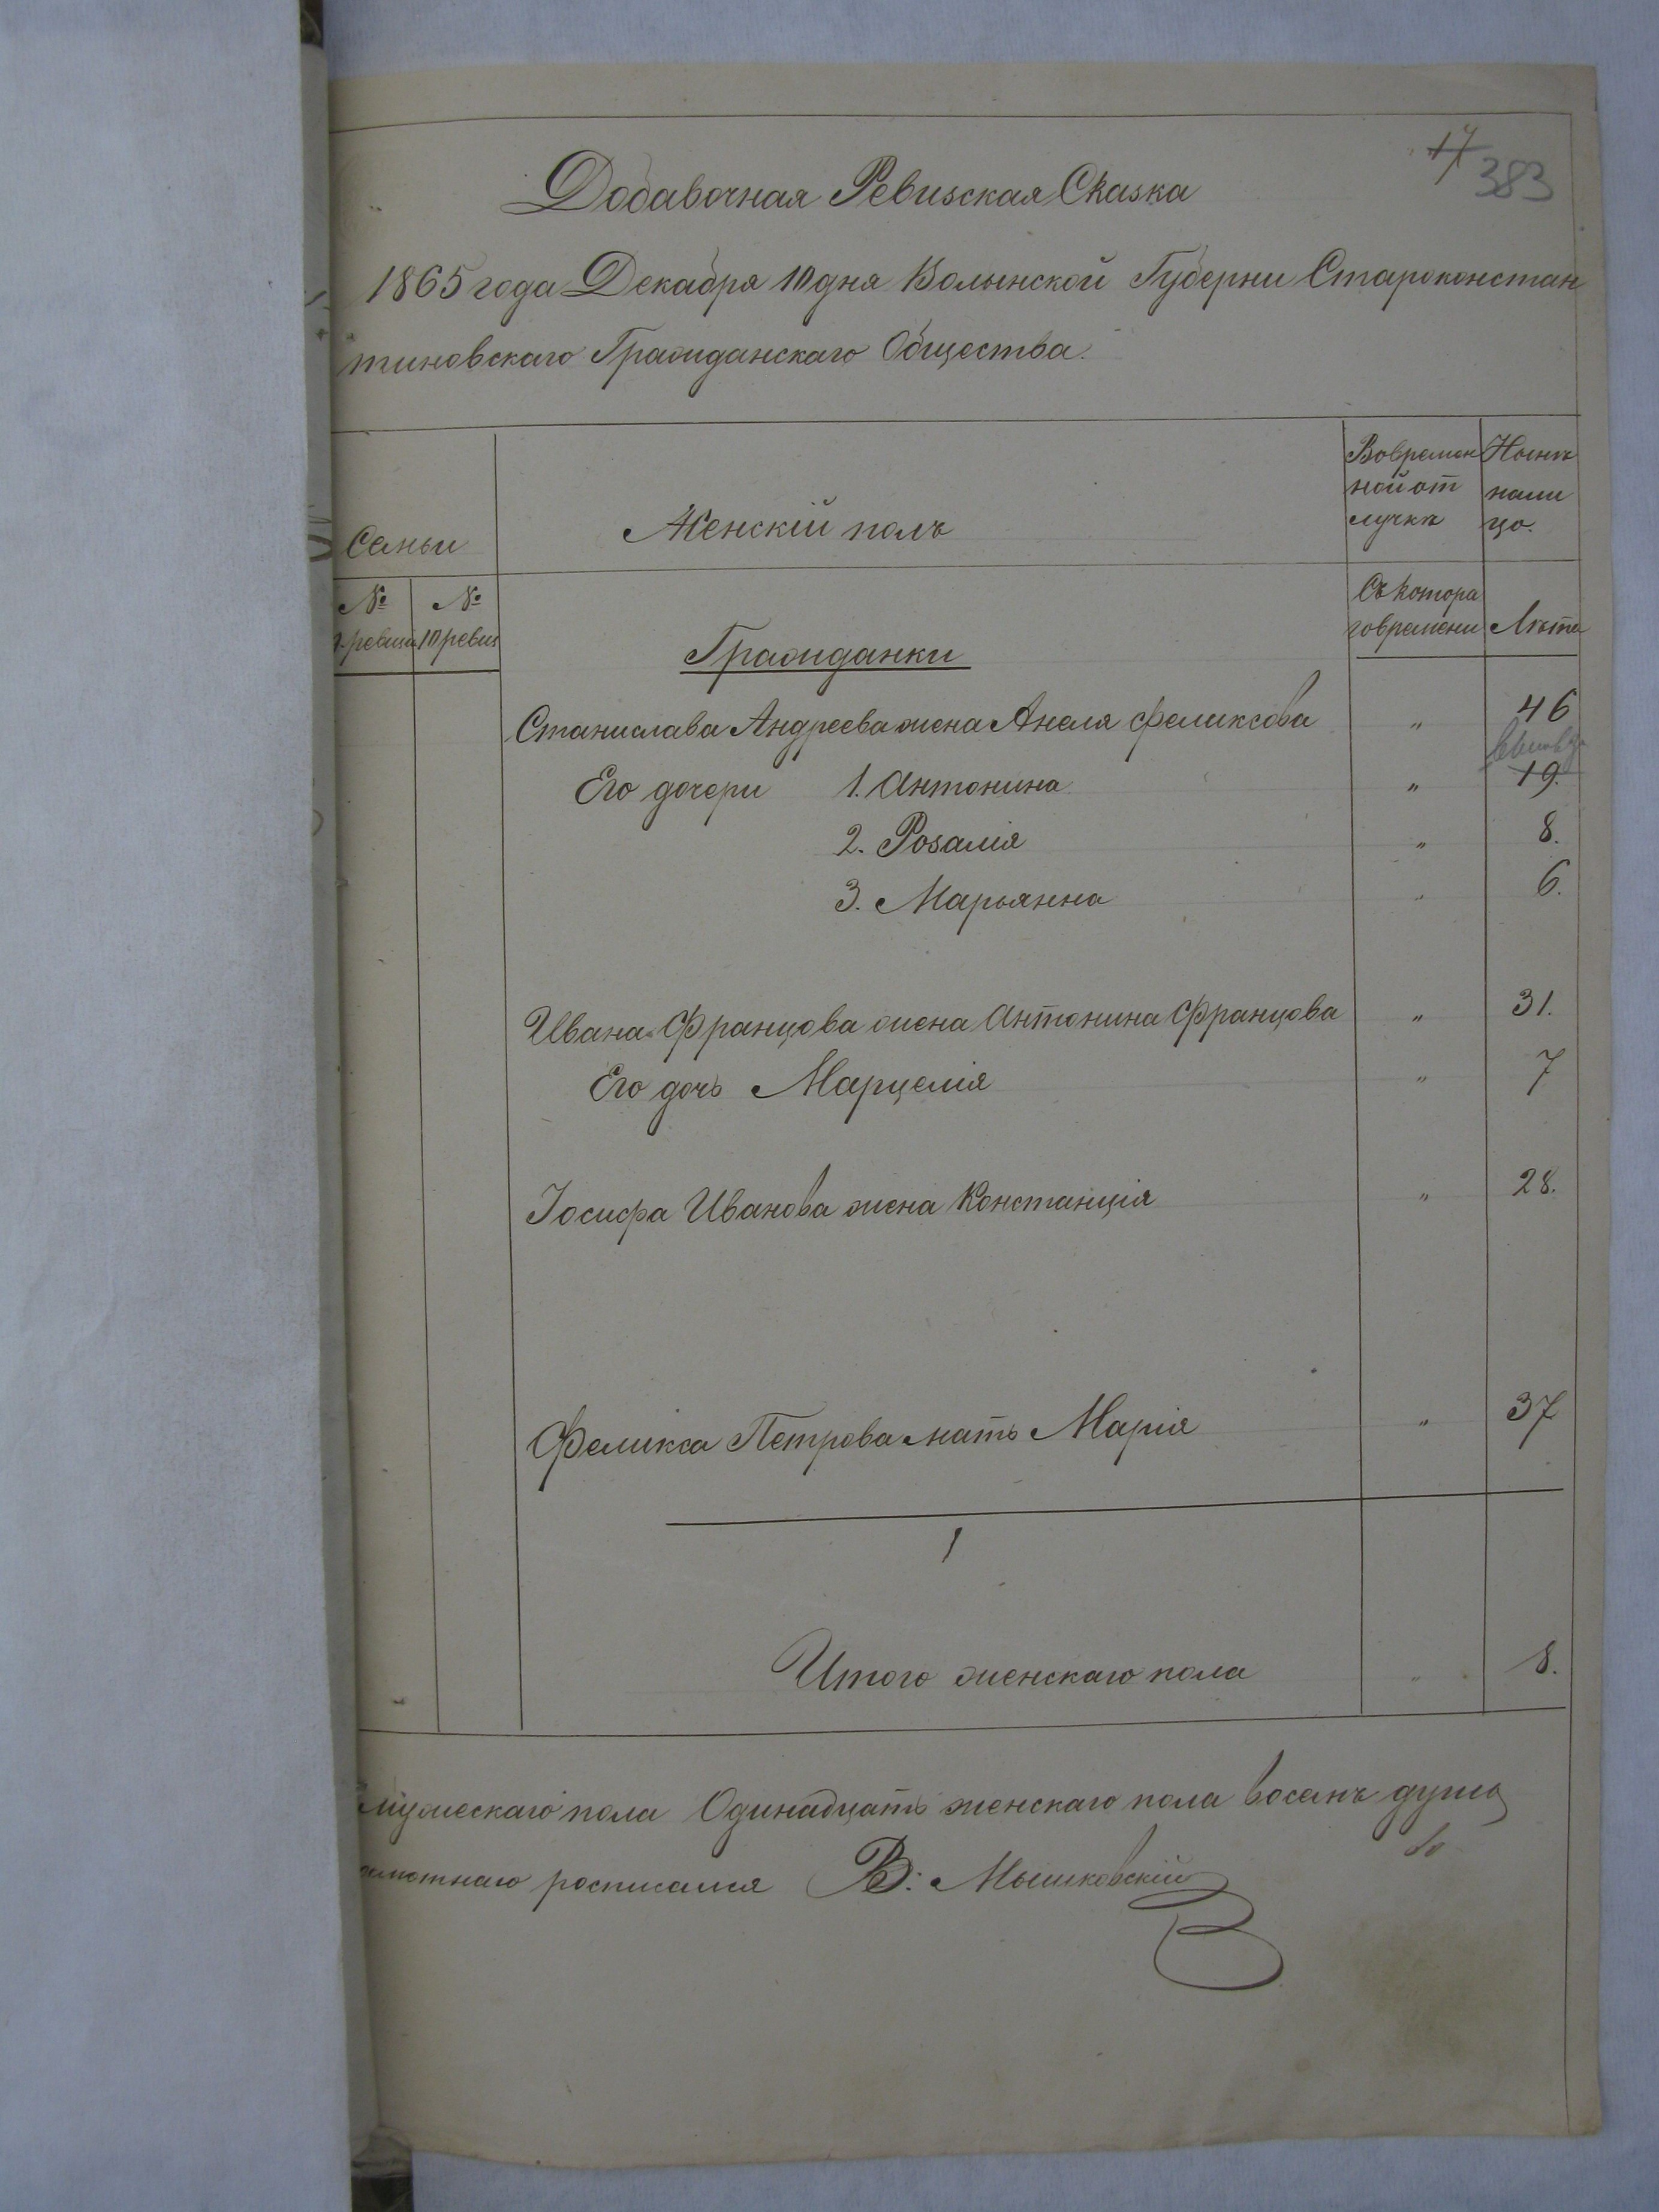 17 383
Добавочная Ревизская Сказка
1865 года Декабря 10 дня Волынской Губерни Староконстан
тиновскаго Гражданскаго Общества.
Семьи
Женскій полъ
Вовремен
ной от
лучкѣ
Нынѣ
нали
цо.
№ ревиз
№ 10 ревиз
Гражданки
Съ котора
го времени
Лѣта
Станислава Андреева жена Анеля Феликсова " 46
Его дочери 1. Антонина " 19.
2. Розалія " 8.
3. Марьянна " 6.
Ивана Францова жена Антонина Францова " 31.
Его дочь Марцелія " 7
Іосифа Иванова жена Констанція " 28.
Феликса Петрова мать Марія " 37
1
Итого женскаго пола " 8.
мужескаго пола Одинадцать женскаго пола восемъ душъ
росписался В: Мышковскій